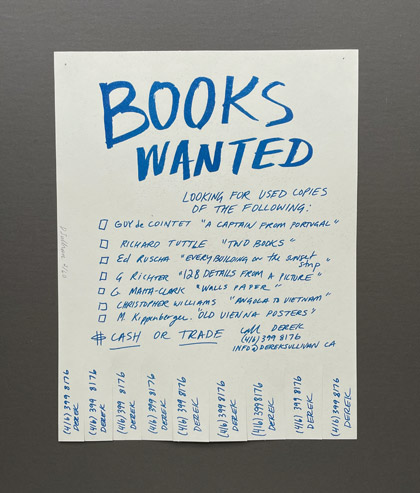 BOOKS
WANTED
LOOKING FOR USED COPIES
OF THE FOLLOWING:
GUY de COINTET "A CAPTAIN FROM PORTUGAL"
RICHARD TUTTLE "TWO BOOKS"
Ed RUSCHA "EVERY BUILDING on the sunset strip"
G RICHTER "128 DETAILS FROM A PICTURE"
G. MATTA-CLARK "WALLS PAPER"
CHRISTOPHER WILLIAMS "ANGOLA TO VIETNAM"
M. Kippenberger. "OLD VIENNA POSTERS"
$ CASH OR TRADE
call DEREK
(416) 399 8176
INFO@DEREKSULLIVAN CA
(416) 399 8176
DEREK
(416) 399 8176
DEREK
(416) 399 8176
DEREK
(416) 399 8176
DEREK
(416) 399 8176
DEREK
(416) 399 8176
DEREK
(416) 399 8176
DEREK
(416) 399 8176
DEREK
(416) 399 8176
DEREK